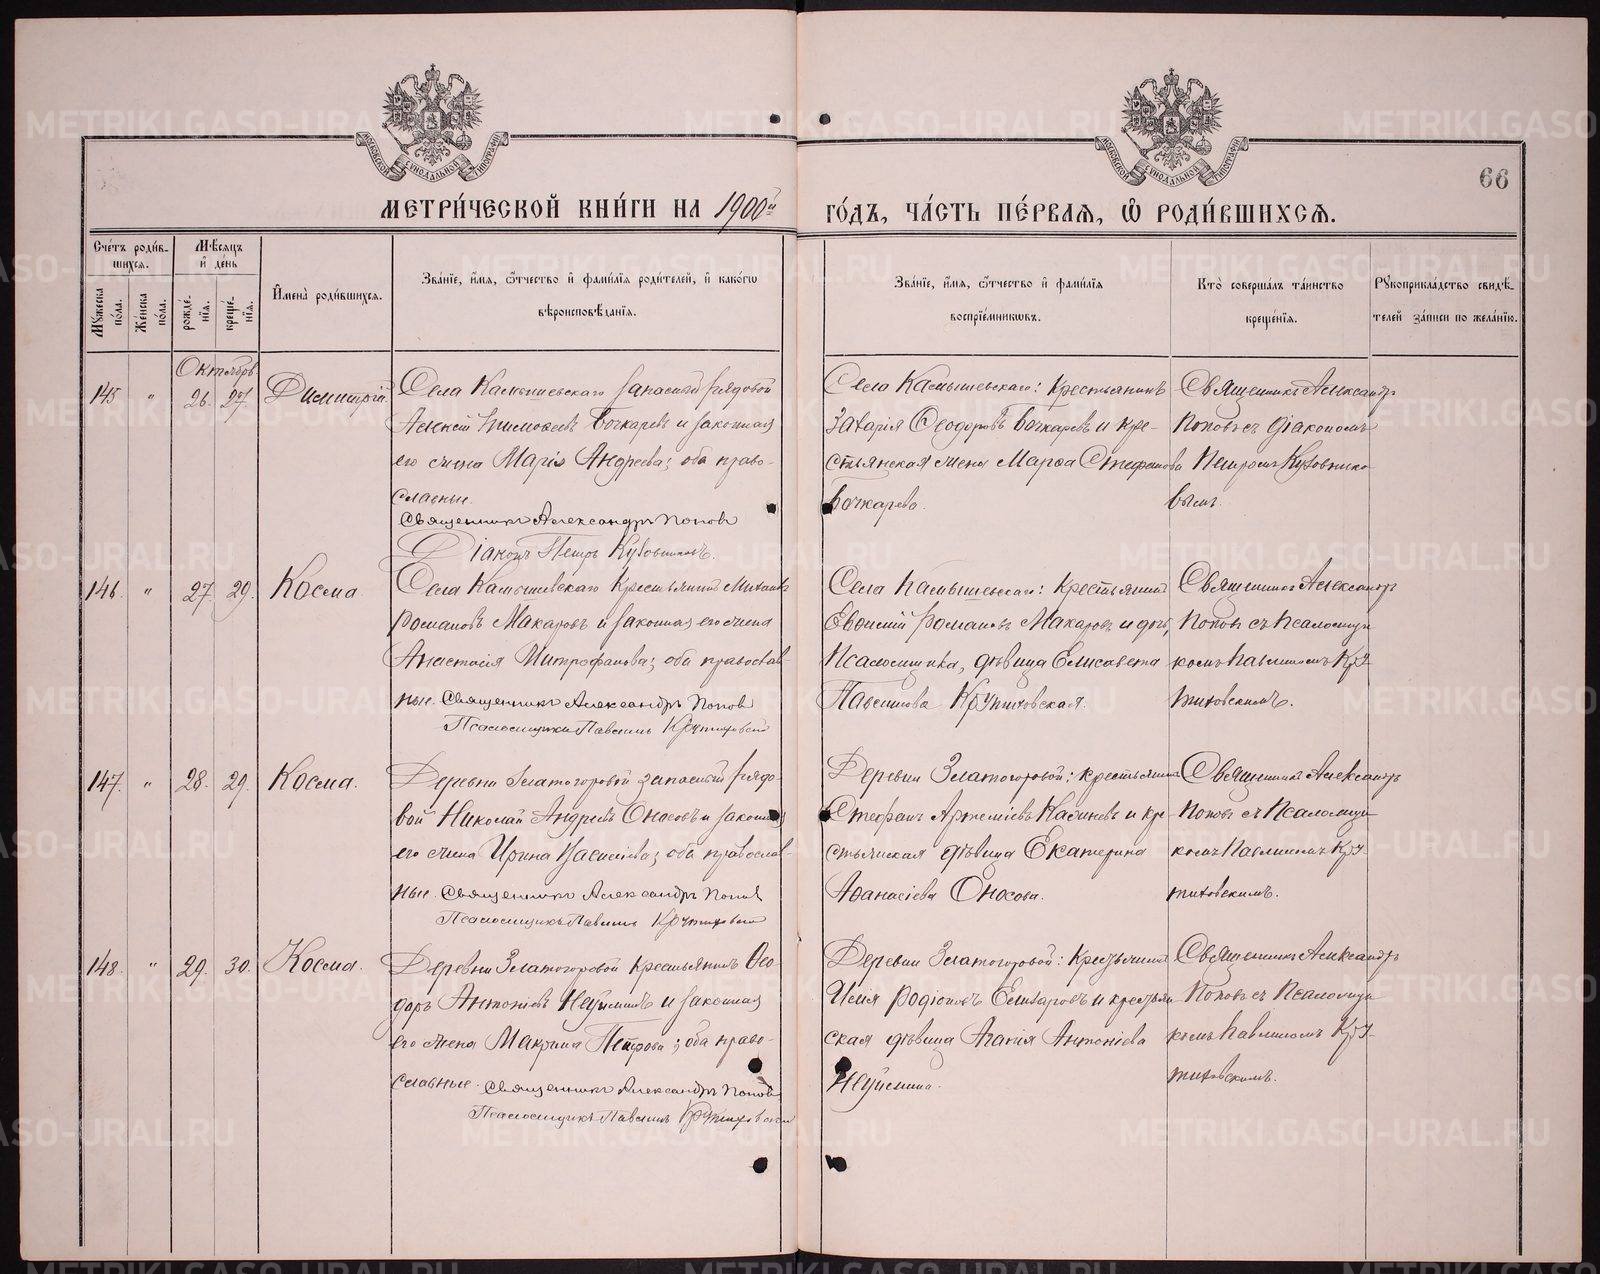 МОСКОВСКОЙ СѴНОДАЛЬНОЙ ТИПОГРАФІИ
МОСКОВСКОЙ СѴНОДАЛЬНОЙ ТИПОГРАФІИ
66
МЕТРИ́ЧЕСКОЙ КНИ́ГИ НА 1900й
ГО́ДЪ, ЧА́СТЬ ПЕ́РВАЯ, Ѡ҆ РОДИ́ВШИХСЯ.
Сче́тъ роди́в-
шихся.
Мѣ́сяцъ
и҆ де́нь
Мꙋ́жеска по́ла.
Же́нска по́ла.
рожде́нїя.
креще́нїя.
И҆мена̀ роди́вшихся.
Зва́нїе, и҆́мя, ѻ҆́тчество и҆ фами́лїя роди́телей, и҆ како́гѡ
вѣроисповѣ́данїя.
Зва́нїе, и҆́мя, ѻ҆́тчество и҆ фами́лїя
воспрїе́мникѡвъ.
Кто̀ соверша́лъ та́инство
креще́нїя.
Рꙋкоприкла́дство свидѣ́-
телей за́писи по жела́нїю.
Октябрь
145 " 26. 27. Димитрій.
Села Камышевскаго запасный рядовой
Алексій Тимоѳеевъ Бочкаревъ и законная
его жена Марія Андреева; оба право-
славные.
Священникъ Александръ Поповъ
Діаконъ Петръ Кубовниковъ.
Села Камышевскаго: Крестьянинъ
Захарія Ѳеодоровъ Бочкаревъ и кре-
стьянская жена Марѳа Стефанова
Бочкарева.
Священникъ Александръ
Поповъ съ Діакономъ
Петромъ Кубовнико-
вымъ.
146. " 27. 29. Косма
Села Камышевскаго Крестьянинъ Михаилъ
Романовъ Макаровъ и законная его жена
Анастасія Митрофанова; оба православ-
ные. Священникъ Александръ Поповъ
Псаломщикъ Павлинъ Крутиховскій
Села Камышевскаго: Крестьянинъ
Евѳимій Романовъ Макаровъ и дочь
Псаломщика, дѣвица Елисавета
Павлинова Крутиховская.
Священникъ Александръ
Поповъ съ Псаломщи-
комъ Павлиномъ Кру-
тиховскимъ.
147. " 28. 29. Косма.
Деревни Златогоровой запасный рядо-
вой Николай Андреевъ Оносовъ и законная
его жена Ирина Василіева; оба православ-
ные. Священникъ Александръ Поповъ
Псаломщикъ Павлинъ Крутиховскій
Деревни Златогоровой: крестьянинъ
Стефанъ Артеміевъ и кре-
стьянская дѣвица Екатерина
Аѳанасіева Оносова.
Священникъ Александръ
Поповъ съ Псаломщи-
комъ Павлиномъ Кру-
тиховскимъ.
148. " 29. 30. Косма.
Деревни Златогоровой Крестьянинъ Ѳео-
доръ Антоніевъ Неуйминъ и законная
его жена Макрина Петрова; оба право-
славные. Священникъ Александръ Поповъ
Псаломщикъ Павлинъ Крутиховскій
Деревни Златогоровой: Крестьянинъ
Илія Родіоновъ Елизаровъ и крестьян-
ская дѣвица Агапія Антоніева
Неуймина.
Священникъ Александръ
Поповъ съ Псаломщи-
комъ Павлиномъ Кру-
тиховскимъ.
METRIKI.GASO-URAL.RU